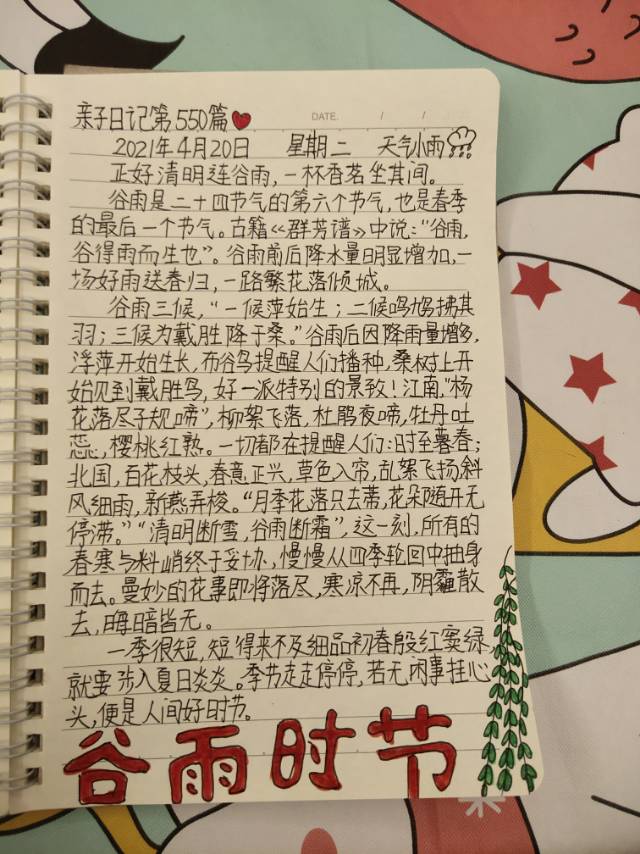 亲子日记第550篇
DATE. / /
2021年4月20日 星期二 天气小雨
正好清明连谷雨,一杯香茗坐其间。
谷雨是二十四节气的第六个节气,也是春季
的最后一个节气。古籍《群芳谱》中说:“谷雨,
谷得雨而生也”。谷雨前后降水量明显增加,一
场好雨送春归,一路繁花落倾城。
谷雨三候,“一候萍始生;二候鸣鸠拂其
羽;三候为戴胜降于桑。”谷雨后因降雨量增多,
浮萍开始生长,布谷鸟提醒人们播种,桑树上开
始见到戴胜鸟,好一派特别的景致!江南,“杨
花落尽子规啼”,柳絮飞落,杜鹃夜啼,牡丹吐
蕊,樱桃红熟。一切都在提醒人们:时至暮春;
北国,百花枝头,春意正兴,草色入帘,乱絮飞扬斜
风细雨,新燕弄梭。“月季花落只去蒂,花朵随开无
停滞。”“清明断雪,谷雨断霜”,这一刻,所有的
春寒与料峭终于妥协,慢慢从四季轮回中抽身
而去。曼妙的花事即将落尽,寒凉不再,阴霾散
去,晦暗皆无。
一季很短,短得来不及细品初春殷红窦绿,
就要涉入夏日炎炎。季节走走停停,若无闲事挂心
头,便是人间好时节。
谷雨时节